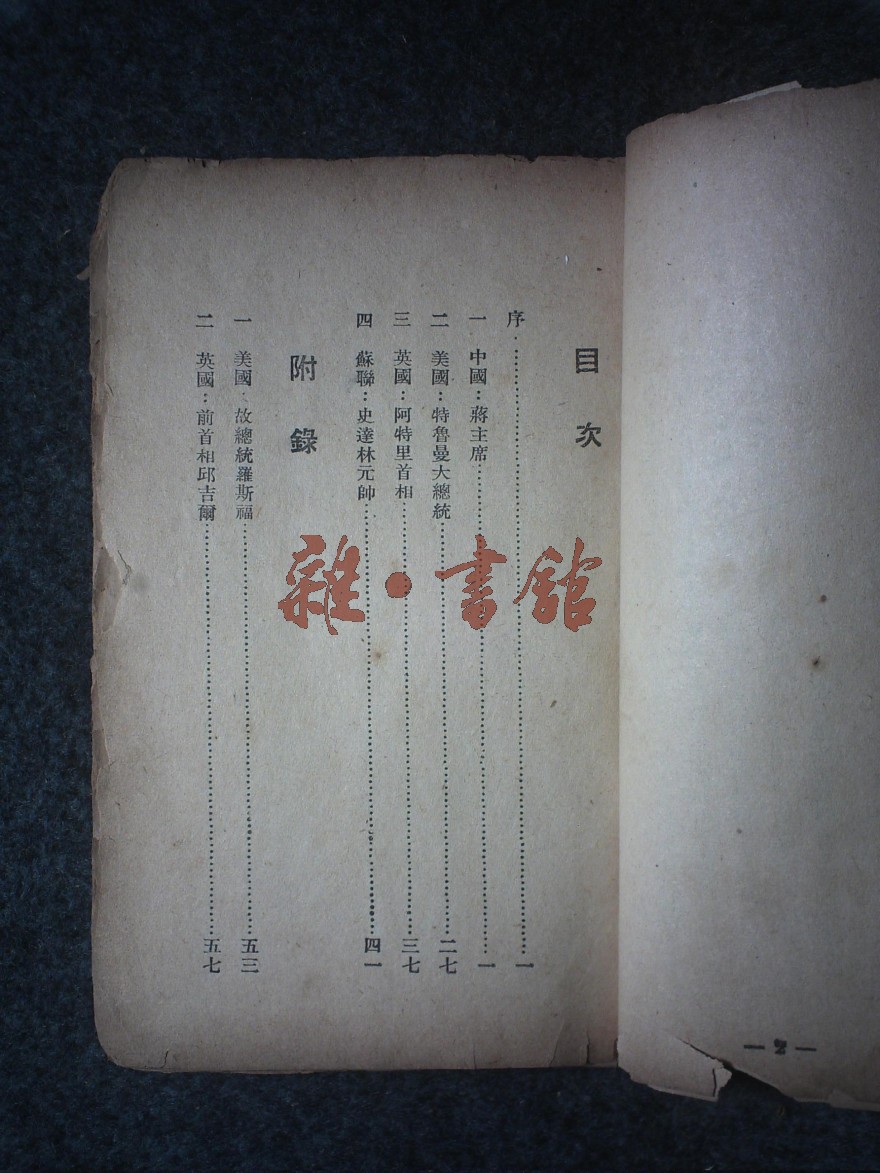 目次
序……一
一 中國：蔣主席……一
二 美國：特魯曼大總統……二七
三 英國：阿特里首相……三七
四 蘇聯：史達林元帥……四一
附錄
一 美國：故總統羅斯福……五三
二 英國：前首相邱吉爾……五七
雜·書館